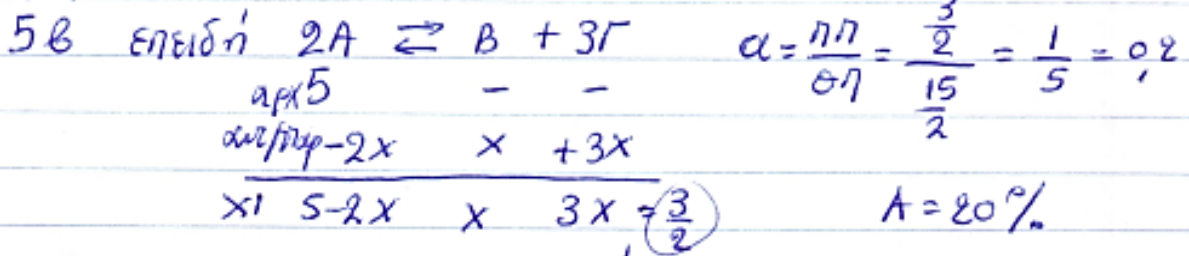 5β επειδή 2Α ⇄ Β + 3Γ α = ππ/θπ = 3/2 / 15/2 = 1/5 = 0,2
αρχ 5 - -
αντ/παρ -2x x +3x
ΧΙ 5-2x x 3x = 3/2 Α = 20%